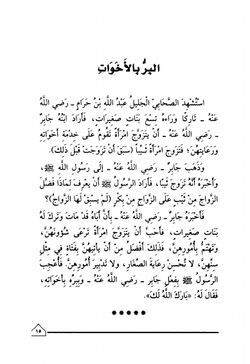 البرُّ بالأَخَوَاتِ
اسْتُشْهِدَ الصَّحَابِيُّ الْجَلِيلُ عَبْدُ اللَّهِ بْنُ حَرَامٍ ـ رَضِي اللَّهُ
عَنْهُ ـ تَارِكًا وَرَاءَهُ تِسْعَ بَنَاتٍ صَغِيرَاتٍ، فَأَرَادَ ابْنُهُ جَابِرٌ
ـ رَضِي اللَّهُ عَنْهُ ـ أَنْ يَتَزَوَّجَ امْرَأَةً تَقُومُ عَلَى خِدْمَةِ أَخَوَاتِهِ
وَرِعَايَتِهِنَّ؛ فَتَزَوَّجَ امْرَأَةً ثَيِّبًا (سَبَقَ أَنْ تَزَوَّجَتْ قَبْلَ ذَلِكَ).
وَذَهَبَ جَابِرٌ ـ رَضِي اللَّهُ عَنْهُ ـ إِلَى رَسُولِ اللَّهِ ﷺ،
وَأَخْبَرَهُ أَنَّهُ تَزَوَّجَ ثَيِّبًا، فَأَرَادَ الرَّسُولُ ﷺ أَنْ يَعْرِفَ لِمَاذَا فَضَّلَ
الزَّوَاجَ مِنْ ثَيِّبٍ عَلَى الزَّوَاجِ مِنْ بِكْرٍ (لَمْ يَسْبِقْ لَهَا الزَّوَاجُ)؟
فَأَخْبَرَهُ جَابِرٌ ـ رَضِي اللَّهُ عَنْهُ ـ بِأَنَّ أَبَاهُ قَدْ مَاتَ وَتَرَكَ لَهُ
تِسْعَ بَنَاتٍ صَغِيرَاتٍ، فَأَحَبَّ أَنْ يَتَزَوَّجَ امْرَأَةً تَرْعَى شُئُونَهُنَّ،
وَتَهْتَمُّ بِأُمُورِهِنَّ، فَذَلِكَ أَفْضَلُ مِنْ أَنْ يَأْتِيَهُنَّ بِفَتَاةٍ فِي مِثْلِ
سِنِّهِنَّ، لَا تُحْسِنُ رِعَايَةَ الصِّغَارِ، وَلَا تَدْبِيرَ أُمُورِهِنَّ. فَأُعْجِبَ
الرَّسُولُ ﷺ بِفِعْلِ جَابِرٍ ـ رَضِي اللَّهُ عَنْهُ ـ وَبِبِرِّهِ بِأَخَوَاتِهِ،
فَقَالَ لَهُ: «بَارَكَ اللَّهُ لَكَ».
١٥